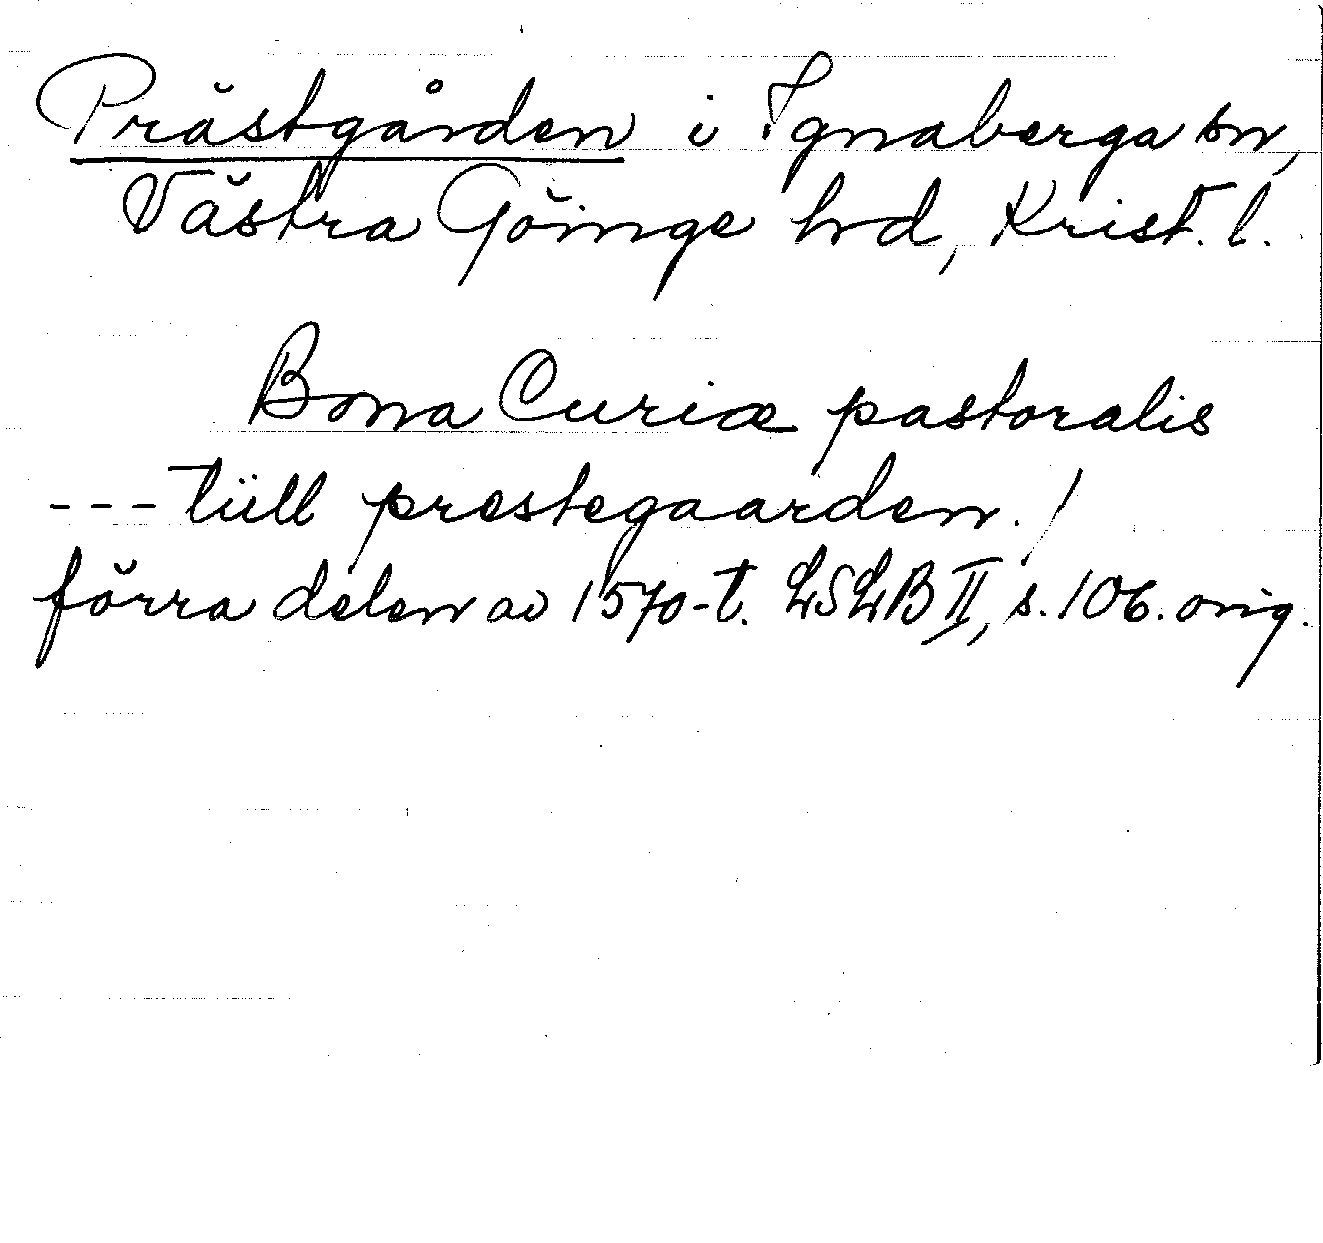 Prästgården i Ignaberga sn,
Västra Göinge hd, Krist. l.
Bona Curiæ pastoralis
--- tüll prestegaarden./
förra delen av 1570-t. LSLB II, s. 106. orig.